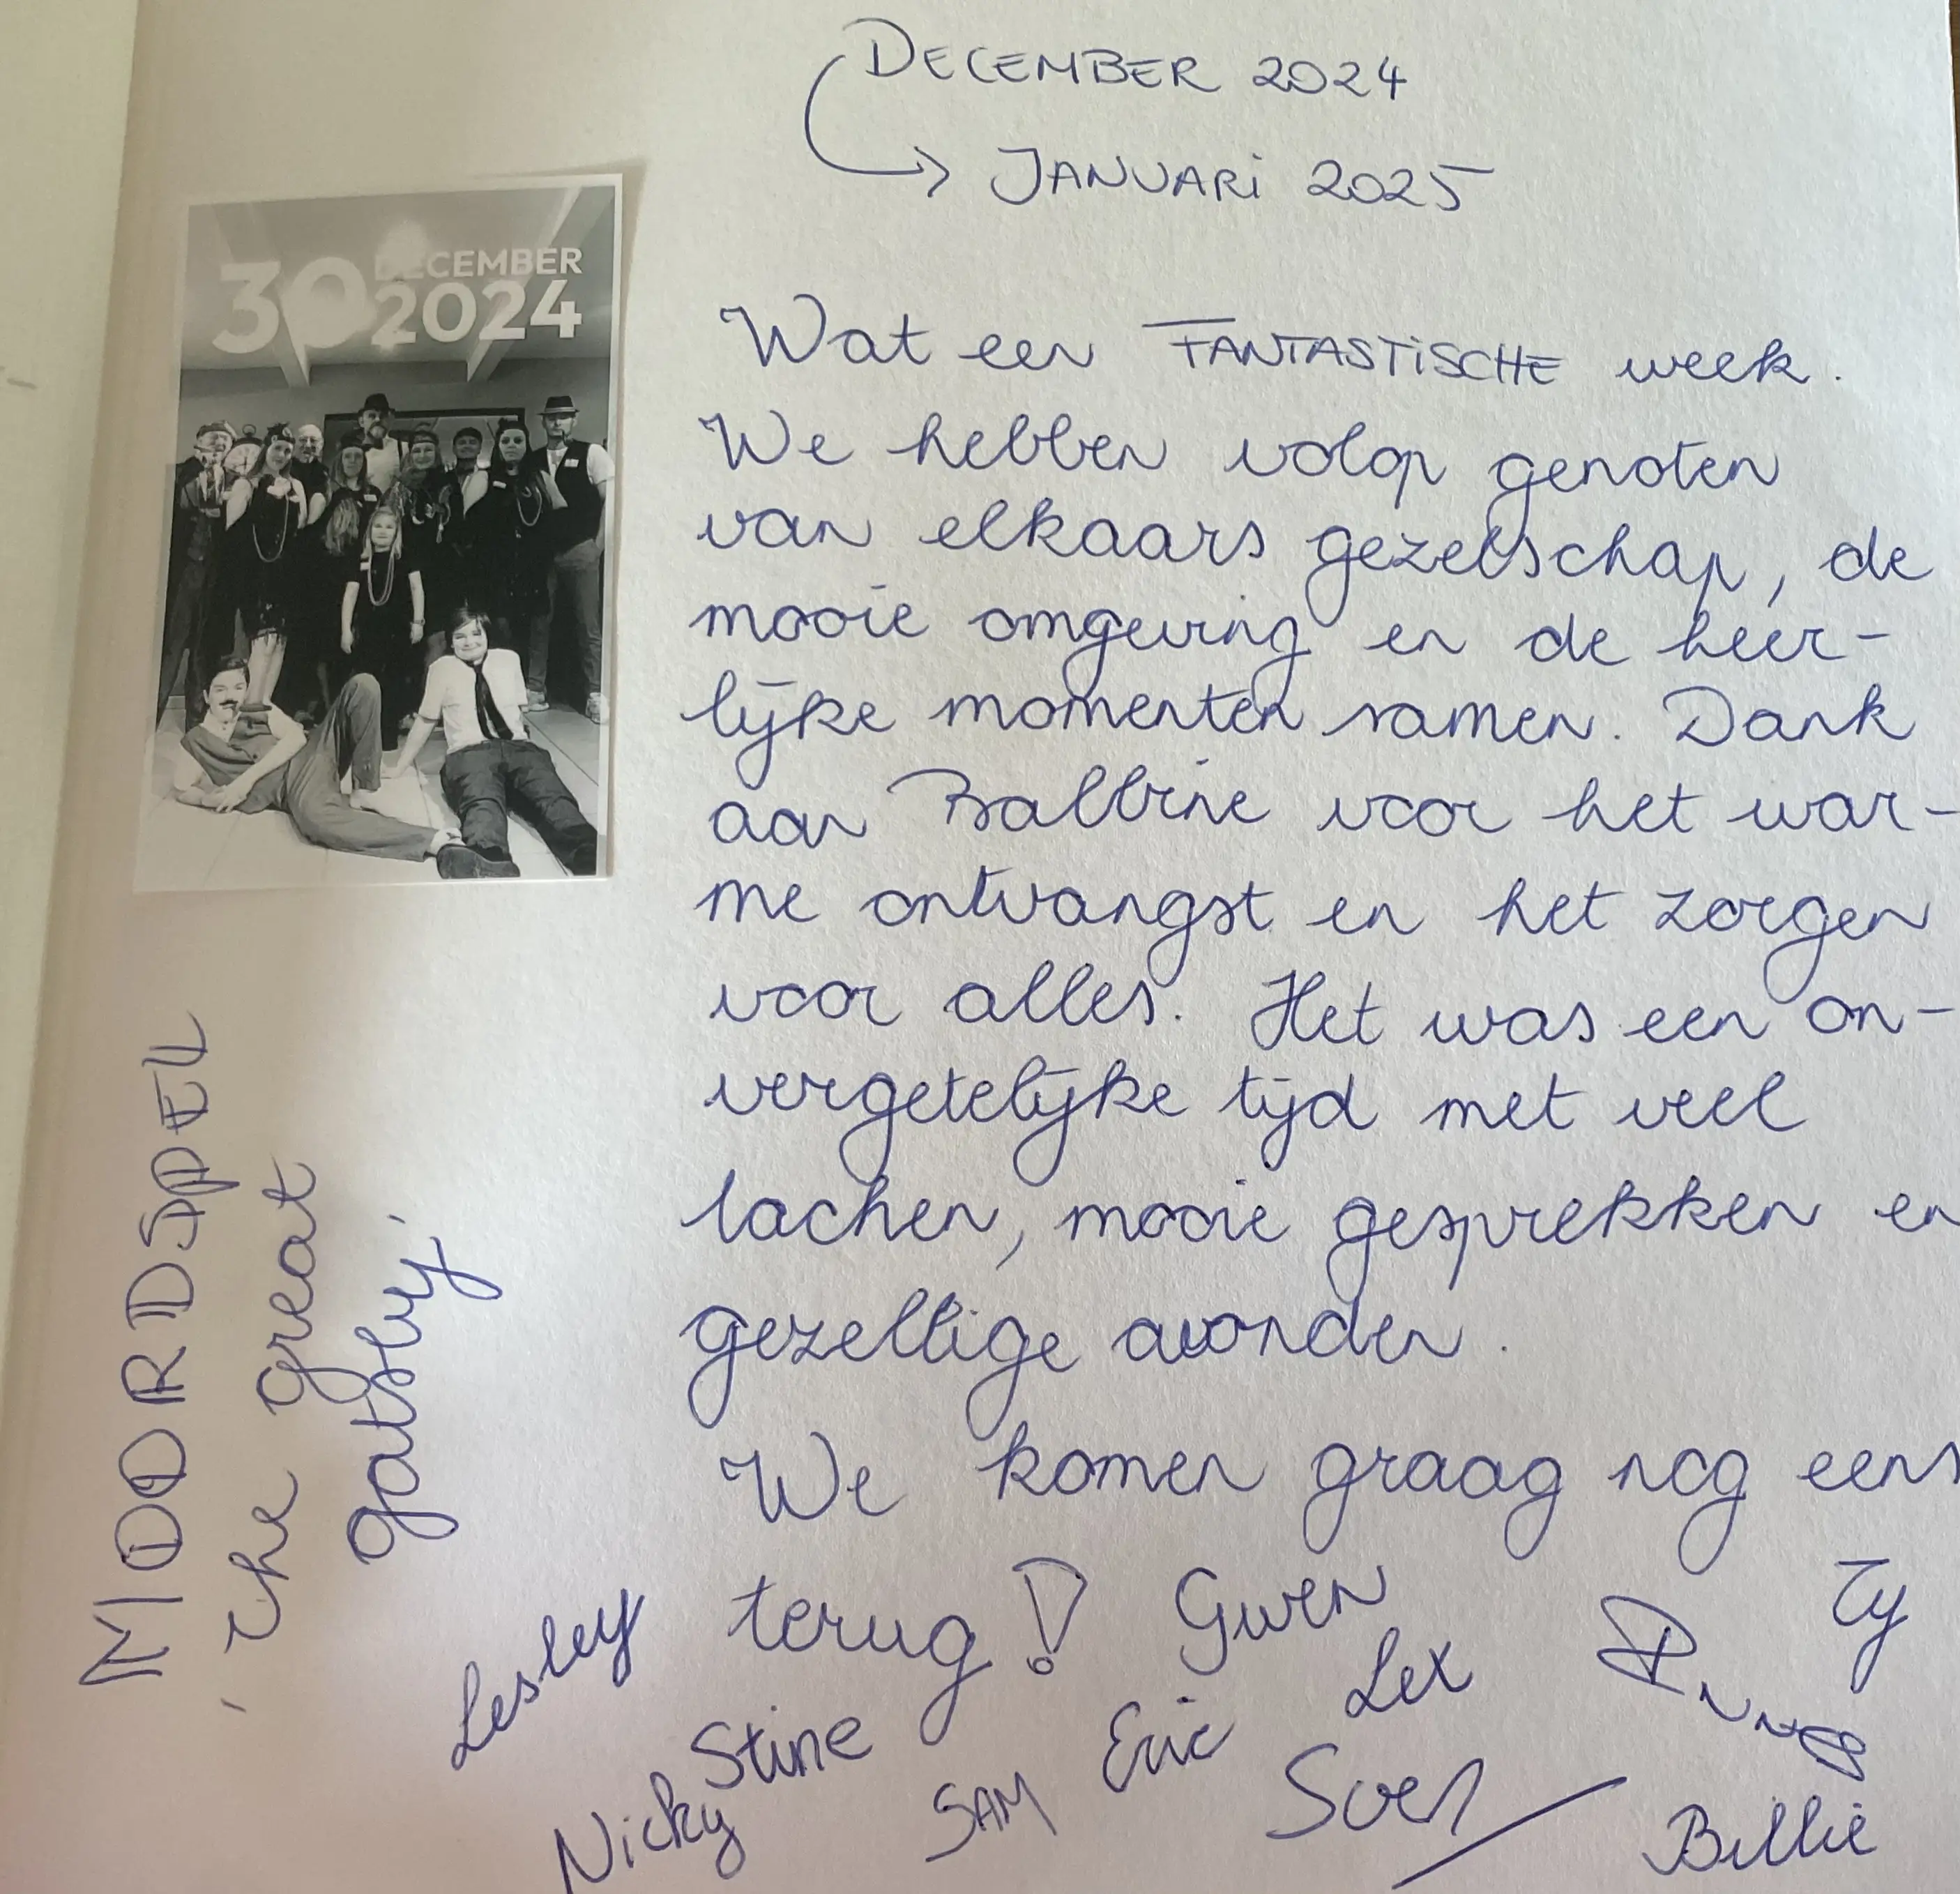 DECEMBER 2024
→ JANUARI 2025
30 DECEMBER
2024
Wat een FANTASTISCHE week.
We hebben volop genoten
van elkaars gezelschap, de
mooie omgeving en de heer-
lijke momenten samen. Dank
aan Balbine voor het war-
me ontvangst en het zorgen
voor alles. Het was een on-
vergetelijke tijd met veel
lachen, mooie gesprekken en
gezellige avonden.
We komen graag nog eens
terug!
MOORDSPEL
'the great
gatsby'
Lesley
Gwen
Ty
Lex
Stine
Eric
Nicky
SAM
Sven
Billie